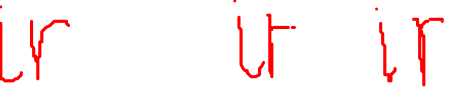 ir ir ir